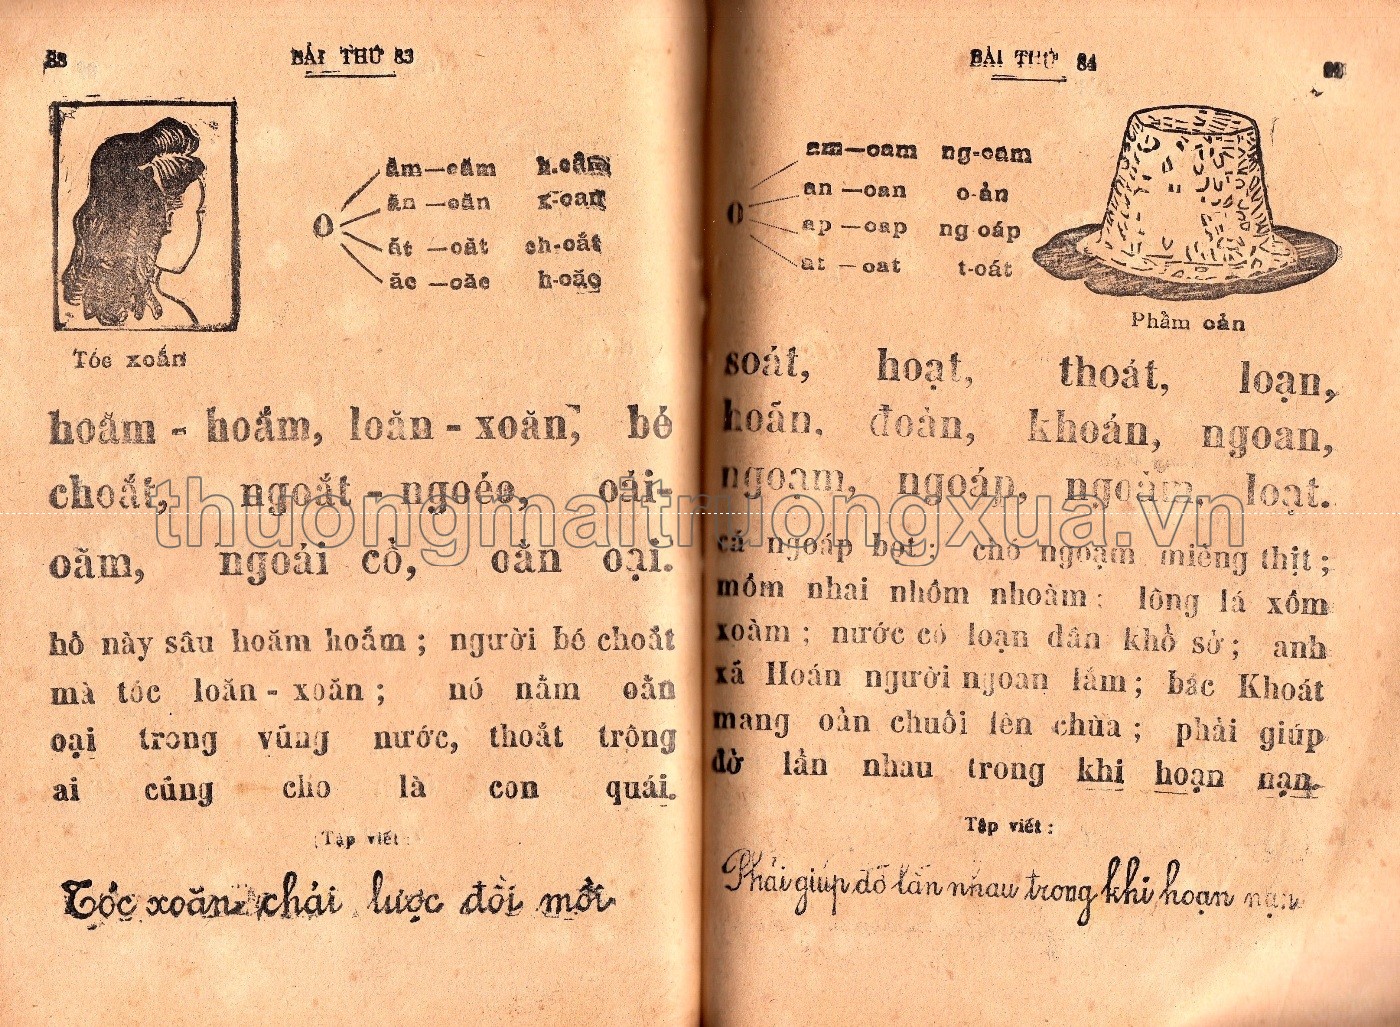 88
BÀI THỨ 83
O
ăm — oăm h.oắm
ăn — oăn x-oan
ắt — oăt ch-oắt
ăc — oăc h-oăc
Tóc xoắn
hoăm - hoắm, loăn - xoăn, bé
choắt, ngoắt - ngoéo, oái-
oăm, ngoái cổ, oằn oại.
hố này sâu hoăm hoắm ; người bé choắt
mà tóc loăn - xoăn ; nó nằm oằn
oại trong vũng nước, thoắt trông
ai cũng cho là con quái.
Tập viết :
Tóc xoăn chải lược đồi mồi
BÀI THỨ 84
O
am — oam ng-oam
an — oan o-ản
ap — oap ng-oáp
at — oat t-oát
Phẩm oản
soát, hoạt, thoát, loạn,
hoãn, đoàn, khoán, ngoan,
ngoạm, ngoáp, ngoàm, loạt.
cá ngoáp bọt ; chó ngoạm miếng thịt ;
mồm nhai nhồm nhoàm ; lông lá xồm
xoàm ; nước có loạn dân khổ sở ; anh
xã Hoán người ngoan lắm ; bác Khoát
mang oản chuối lên chùa ; phải giúp
đỡ lẫn nhau trong khi hoạn nạn.
Tập viết :
Phải giúp đỡ lẫn nhau trong khi hoạn nạn
thuongmaitruongxua.vn